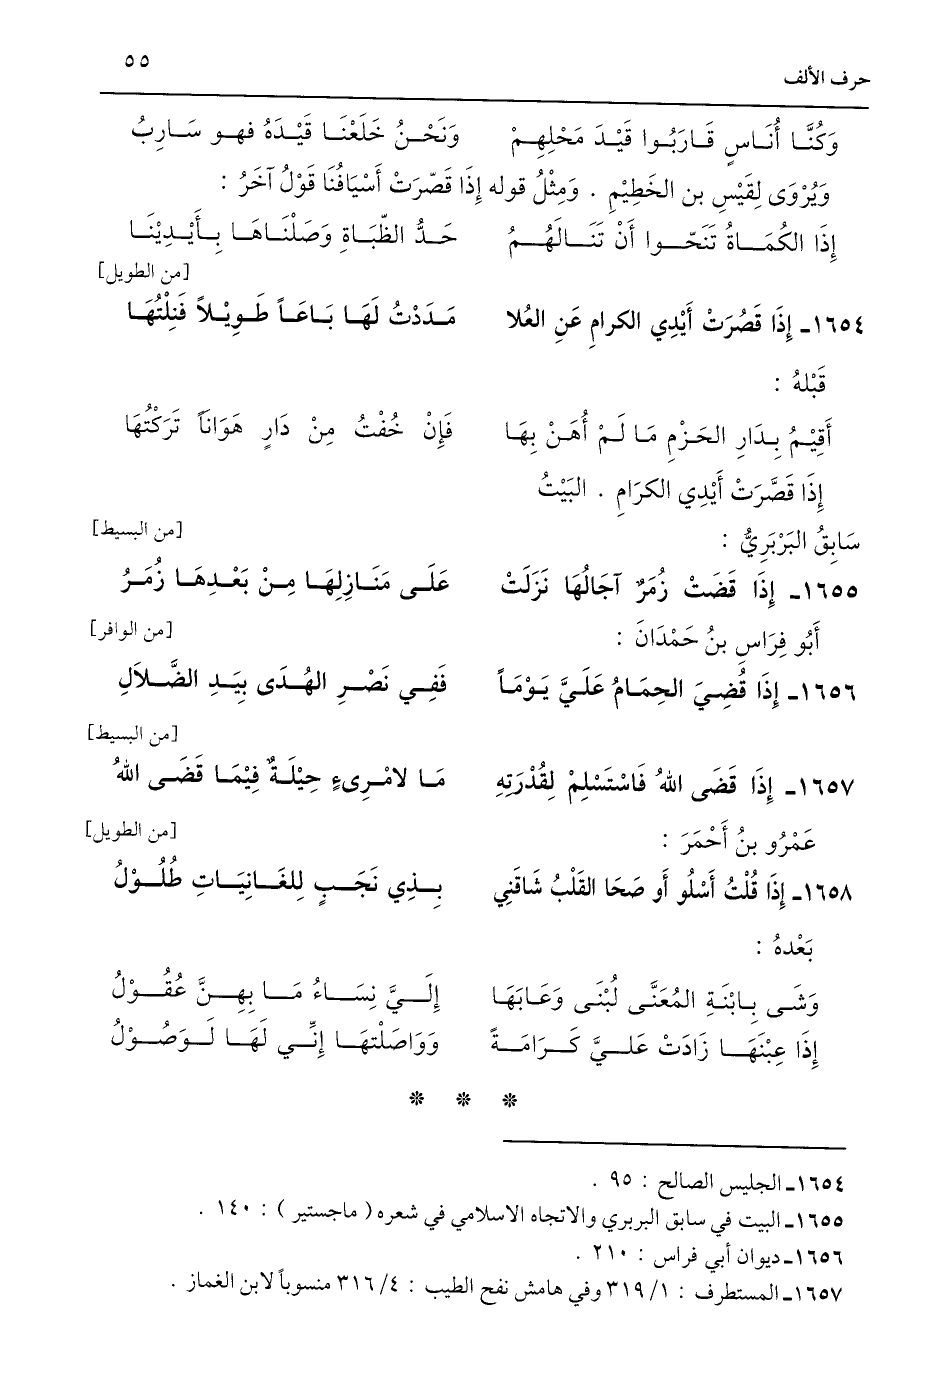 حرف الألف ٥٥
وَكُنَّا أُنَاسٍ قَارَبُوا قَيْدَ مَحْلِهِمْ وَنَحْنُ خَلَعْنَا قَيْدَهُ فهو سَارِبُ
وَيُرْوَى لِقَيْسِ بن الخَطِيْمِ . وَمِثْلُ قوله إِذَا قَصّرَتْ أَسْيَافُنَا قَوْلُ آخَرُ :
إِذَا الكُمَاةُ تَنَحّوا أَنْ تَنَالَهُمُ حَدُّ الظّبَاةِ وَصَلْنَاهَا بِأَيْدِيْنَا
[من الطويل]
١٦٥٤ـ إِذَا قَصُرَتْ أَيْدِي الكرامِ عَنِ العُلا مَدَدْتُ لَهَا بَاعَاً طَوِيْلاً فَنِلْتُهَا
قَبْلهُ :
أَقِيْمُ بِدَارِ الحَزْمِ مَا لَمْ أُهَنْ بِهَا فَإِنْ خُفْتُ مِنْ دَارٍ هَوَانَاً تَرَكْتُهَا
إِذَا قَصَّرَتْ أَيْدِي الكرَامِ . البَيْتُ
سَابِقُ البَرْبَرِيُّ :
[من البسيط]
١٦٥٥ـ إِذَا قَضَتْ زُمَرٌ آجَالُهَا نَزَلَتْ عَلَى مَنَازِلِهَا مِنْ بَعْدِهَا زُمَرُ
أَبُو فِرَاسِ بنُ حَمْدَانَ :
[من الوافر]
١٦٥٦ـ إِذَا قُضِيَ الحِمَامُ عَلَيَّ يَوْمَاً فَفِي نَصْرِ الهُدَى بِيَدِ الضَّلاَلِ
[من البسيط]
١٦٥٧ـ إِذَا قَضَى اللهُ فَاسْتَسْلِمْ لِقُدْرَتِهِ مَا لامْرِىءٍ حِيْلَةٌ فِيْمَا قَضَى اللهُ
عَمْرُو بنُ أَحْمَرَ :
[من الطويل]
١٦٥٨ـ إِذَا قُلْتُ أَسْلُو أَو صَحَا القَلْبُ شَاقَنِي بِذِي نَجَبٍ لِلغَانِيَاتِ طُلُوْلُ
بَعْدهُ :
وَشَى بِابْنَةِ المُعَنَّى لُبْنَى وَعَابَهَا إِلَيَّ نِسَاءُ مَا بِهِنَّ عُقُوْلُ
إِذَا عِبْنَهَا زَادَتْ عَلَيَّ كَرَامَةً وَوَاصَلْتهَا إِنِّي لَهَا لَوَصُوْلُ
* * *
١٦٥٤ـ الجليس الصالح : ٩٥ .
١٦٥٥ـ البيت في سابق البربري والاتجاه الاسلامي في شعره ( ماجستير ) : ١٤٠ .
١٦٥٦ـ ديوان أبي فراس : ٢١٠ .
١٦٥٧ـ المستطرف : ١/ ٣١٩ وفي هامش نفح الطيب : ٤/ ٣١٦ منسوباً لابن الغماز .